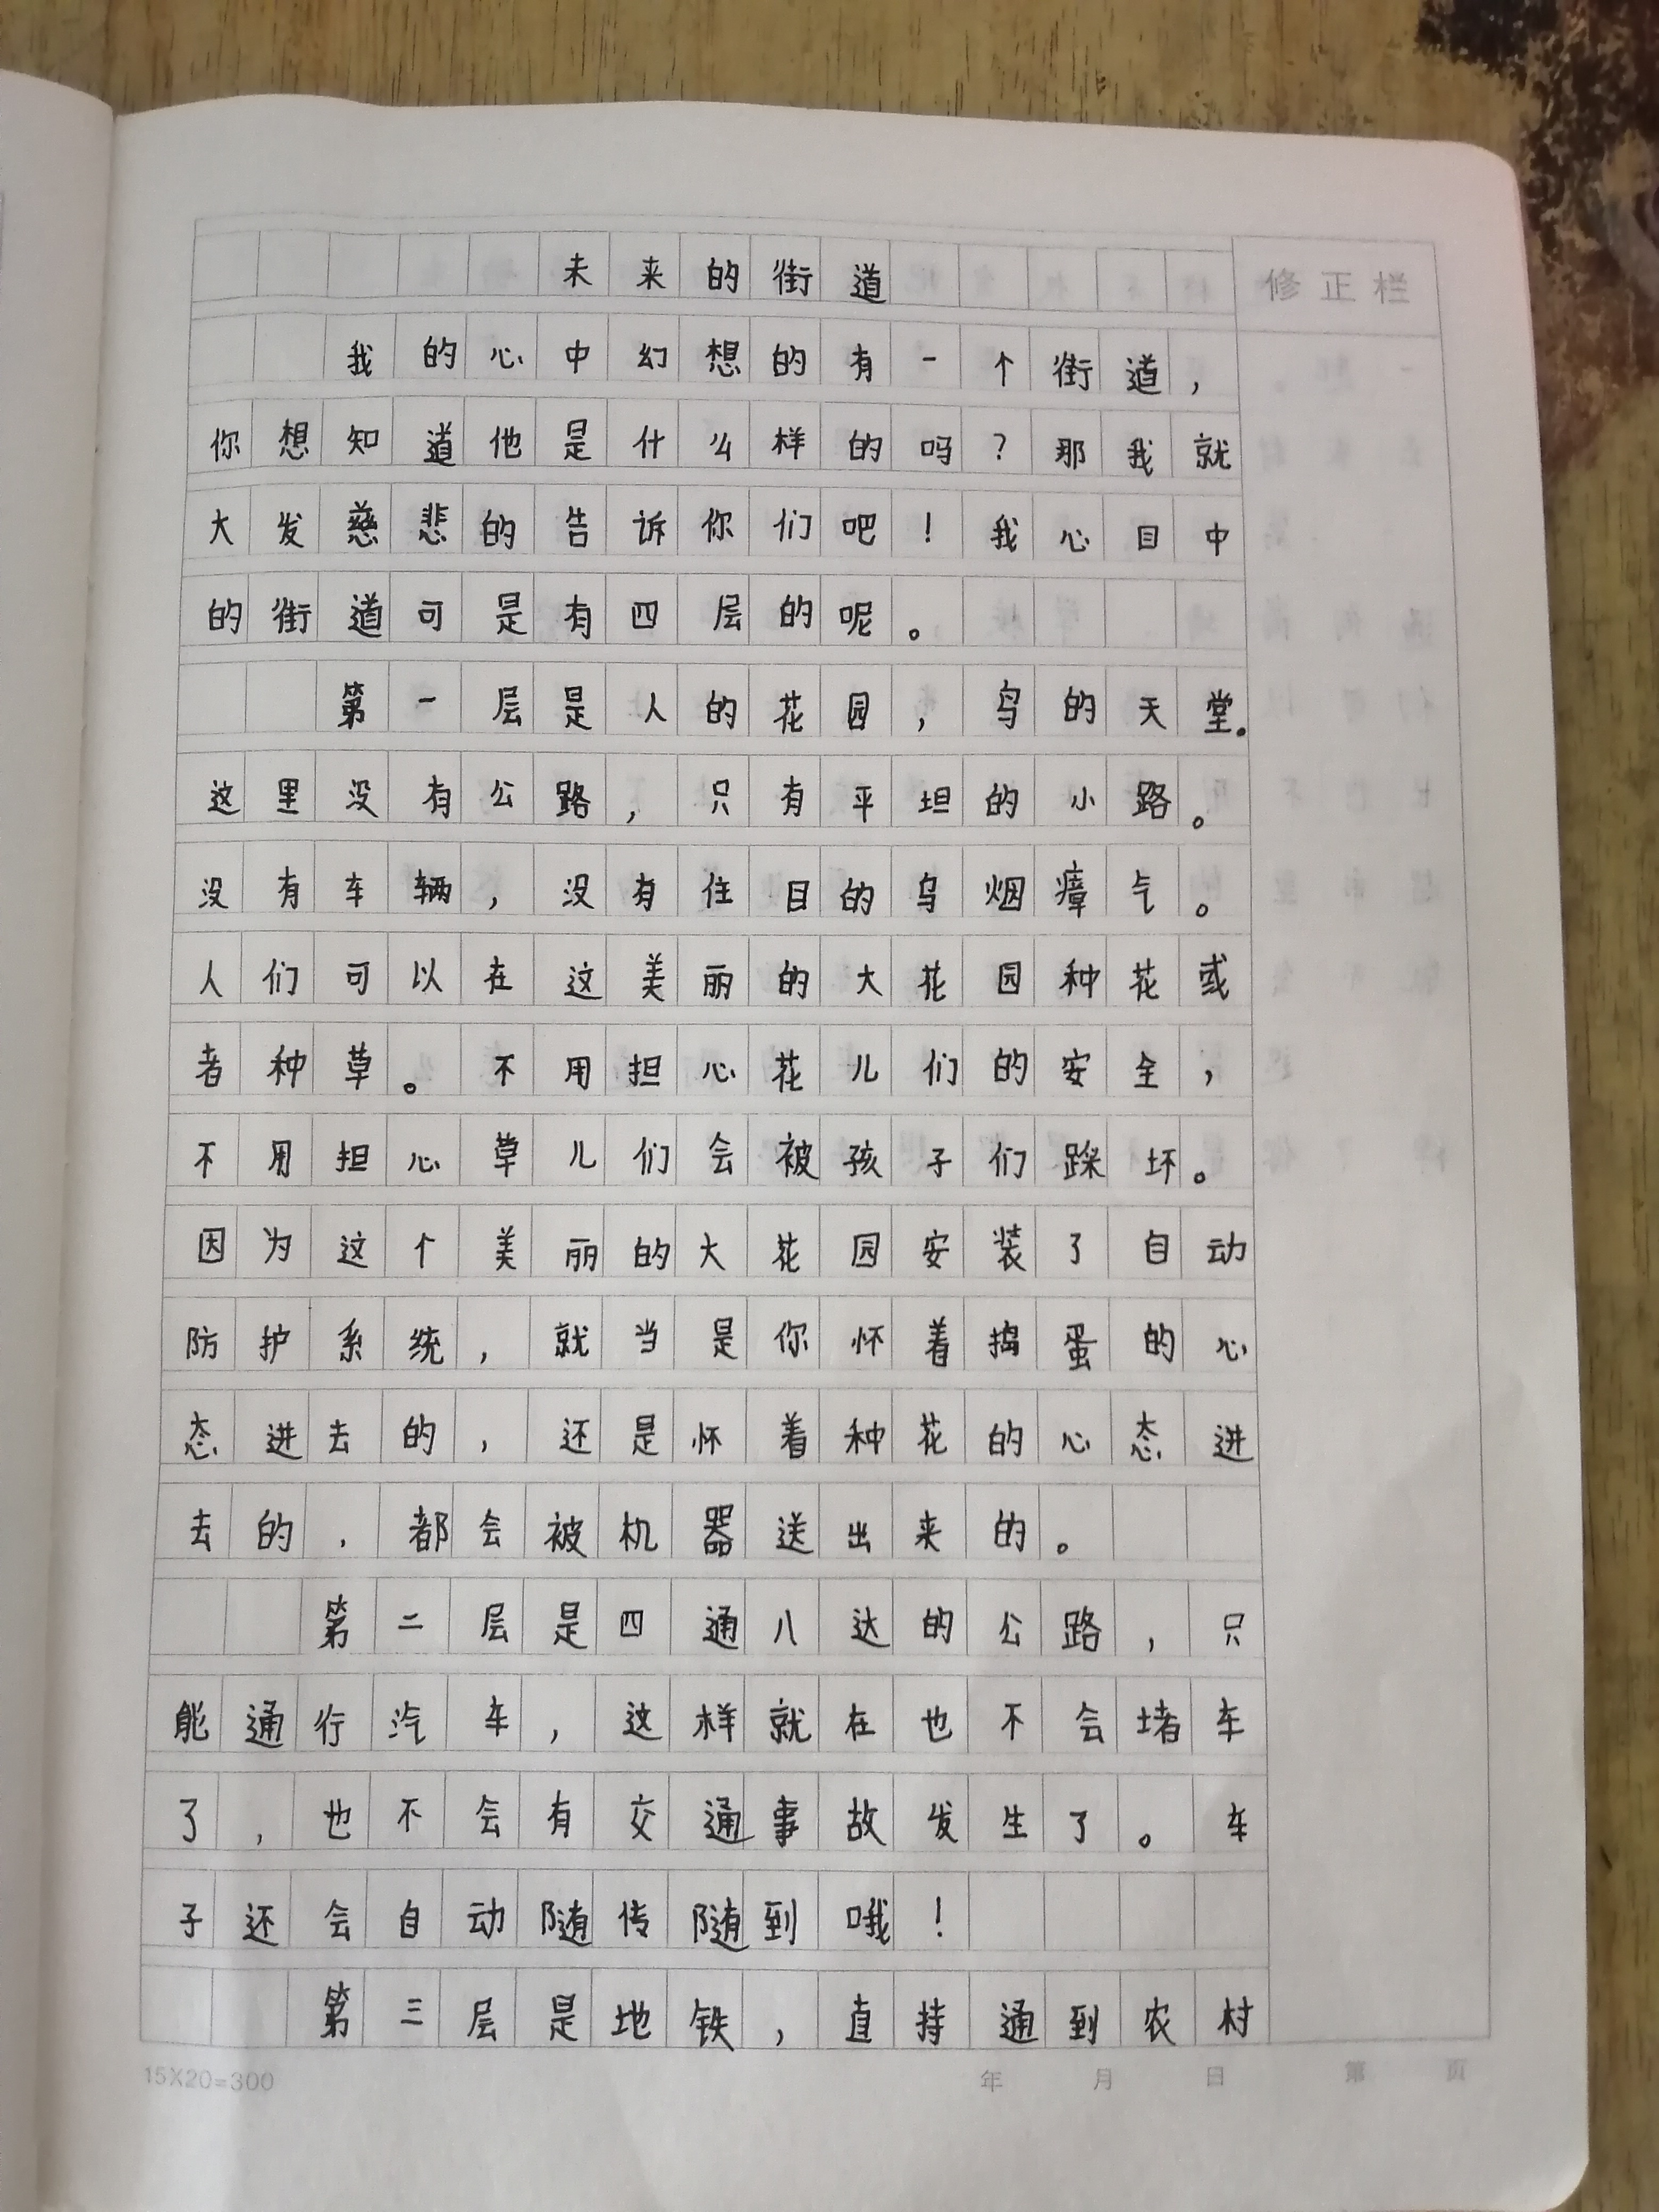 未来的街道
修正栏
我的心中幻想的有一个街道，
你想知道他是什么样的吗？那我就
大发慈悲的告诉你们吧！我心目中
的街道可是有四层的呢。
第一层是人的花园，鸟的天堂。
这里没有公路，只有平坦的小路。
没有车辆，没有住目的乌烟瘴气。
人们可以在这美丽的大花园种花或
者种草。不用担心花儿们的安全，
不用担心草儿们会被孩子们踩坏。
因为这个美丽的大花园安装了自动
防护系统，就当是你怀着捣蛋的心
态进去的，还是怀着种花的心态进
去的，都会被机器送出来的。
第二层是四通八达的公路，只
能通行汽车，这样就在也不会堵车
了，也不会有交通事故发生了。车
子还会自动随传随到哦！
第三层是地铁，直持通到农村
15X20=300 年 月 日 第 页